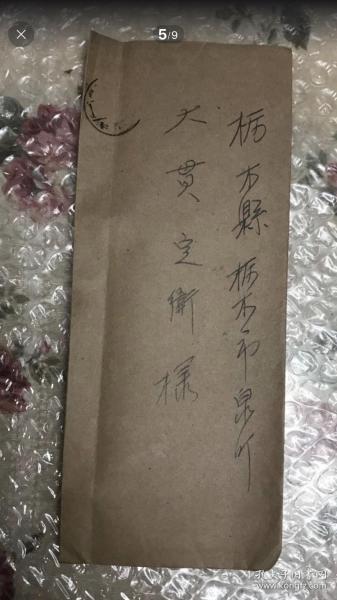 5/9
栃木縣栃木市泉町
大貫定衛様
孔夫子旧书网